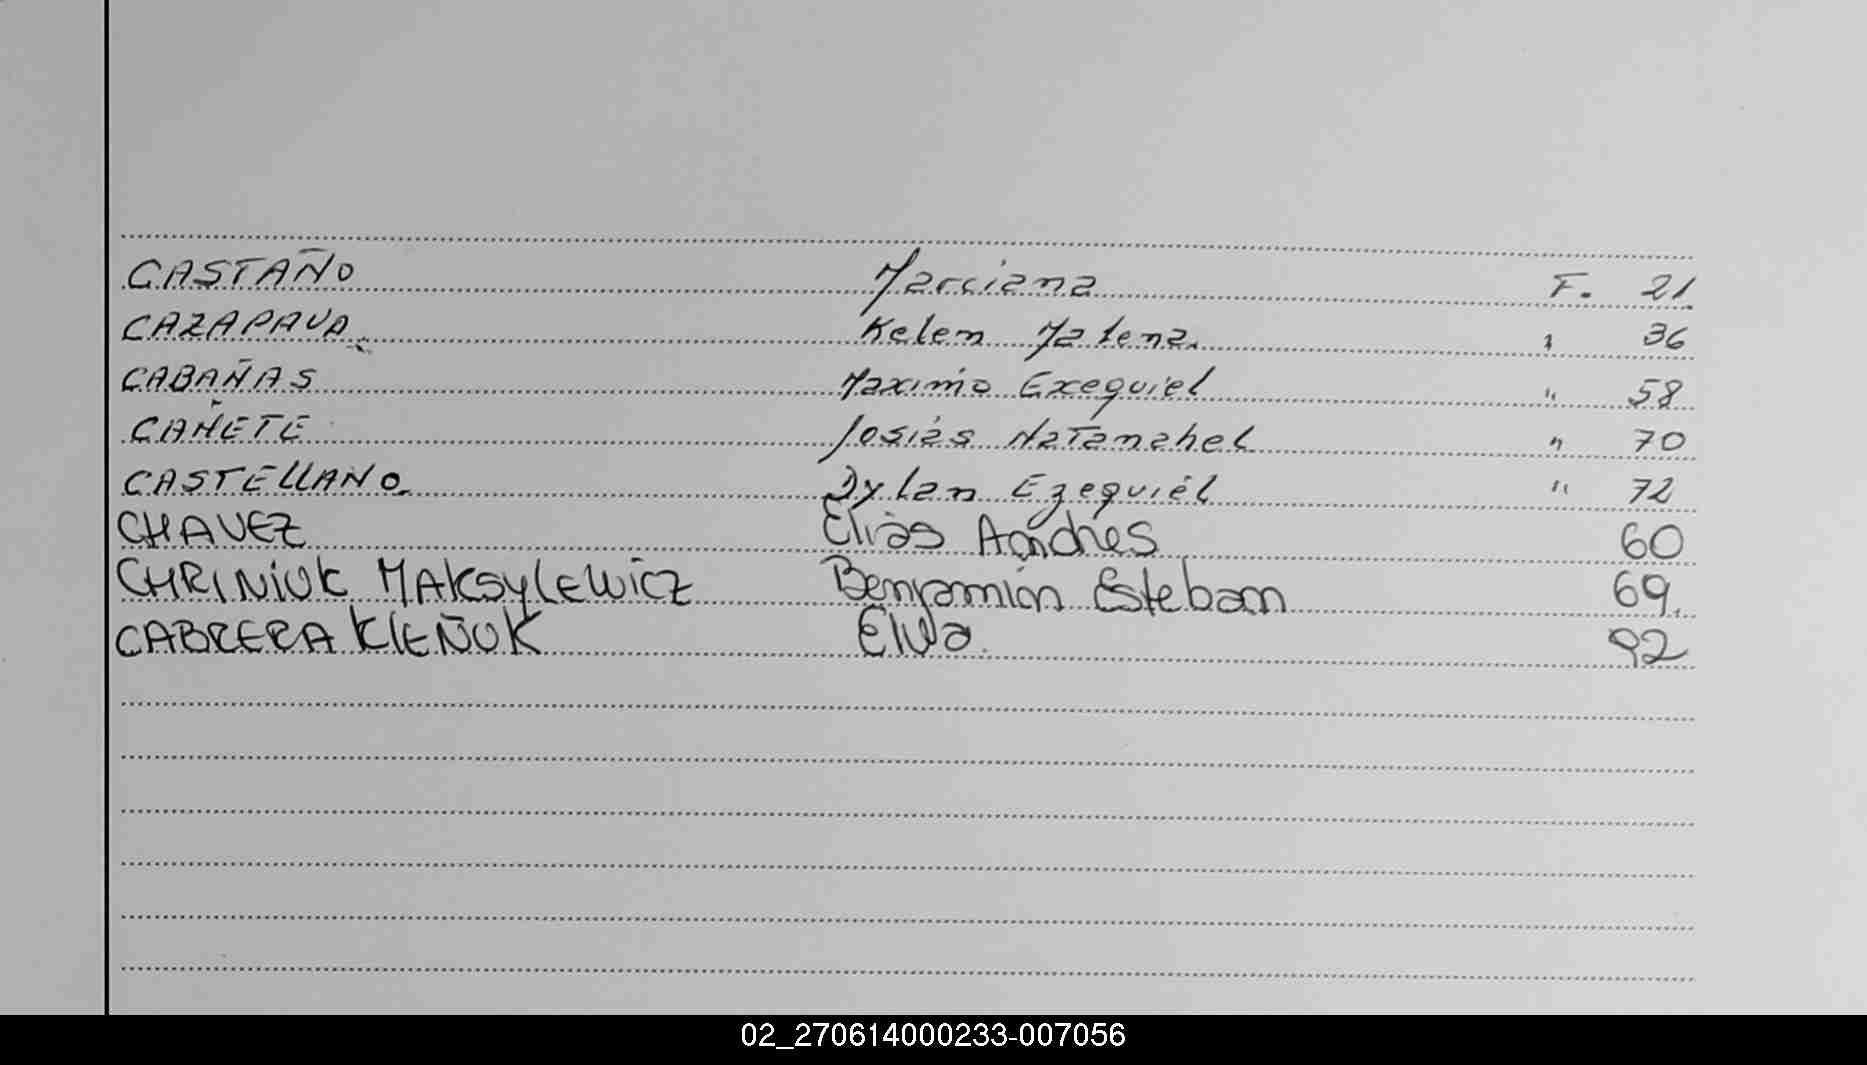 CASTAÑO Marciana F. 21
CAZAPAVA Kelem Malena. " 36
CABAÑAS Maximo Exequiel " 58
CAÑETE Josiás Natanahel " 70
CASTELLANO Dylan Ezequiél " 72
CHAVEZ Eliàs Andrés 60
CHRINIUK MAKSYLEWICZ Benjamin Esteban 69.
CABRERA KIEÑUK Elva. 92
02_270614000233-007056